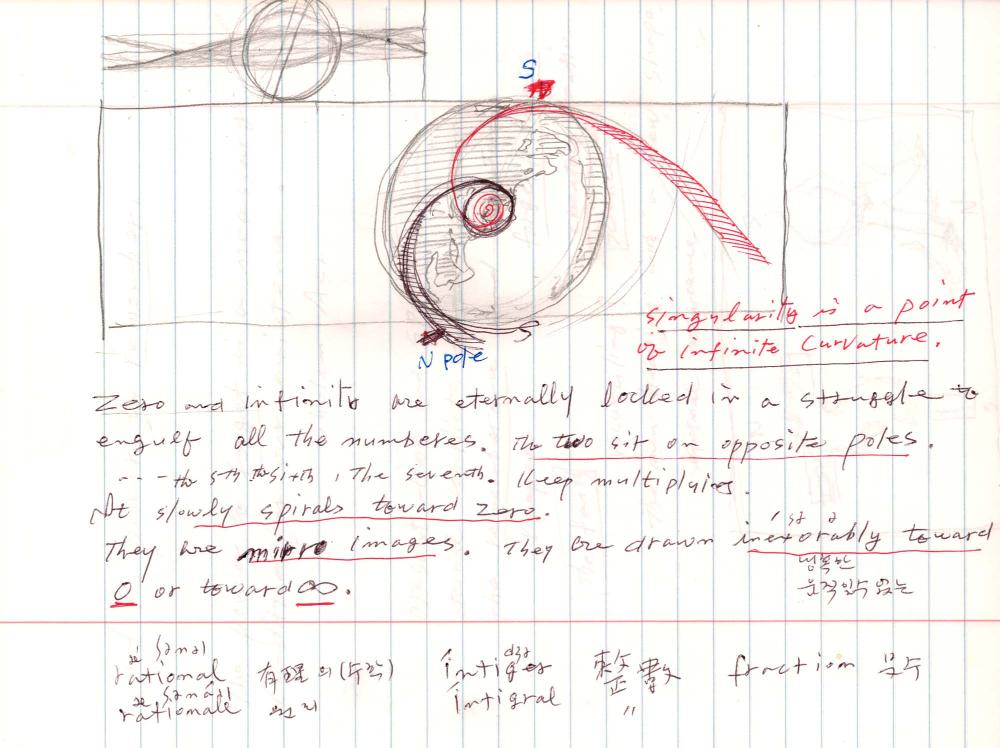 S
N pole
S
singularity is a point
of infinite curvature.
Zero and infinity are eternally locked in a struggle to
engulf all the numberes. The two sit on opposite poles.
---- the 5th the sixth, The seventh. Keep multiplying.
It slowly spirals toward zero.
They are mirro images. They are drawn inexorably toward
냉혹한
0 or toward ∞.
움직일수 없는
rational 有理의 (수학) intiger 整數 fraction 분수
rationale 원리 intigral 〃